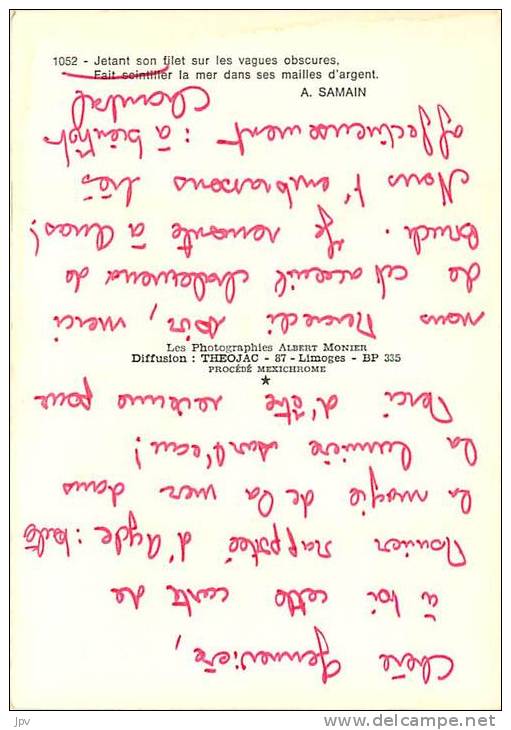 1052 - Jetant son filet sur les vagues obscures,
Fait scintiller la mer dans ses mailles d'argent.
A. SAMAIN
Les Photographies ALBERT MONIER
Diffusion : THEOJAC - 87 - Limoges - BP 335
PROCÉDÉ MEXICHROME
★
Chère Gennevieve,
à toi cette carte de
Monier rapportée d'Agde : toute
la magie de la mer dans
la lumière sur l'eau !
Merci d'être venue pour
nous Mercredi soir, merci
de cet accueil chaleureux de
Bruch. Je remonte à Arras !
Nous t'embrassons très
affectueusement : à bientôt
Chantal
jpv
www.delcampe.net